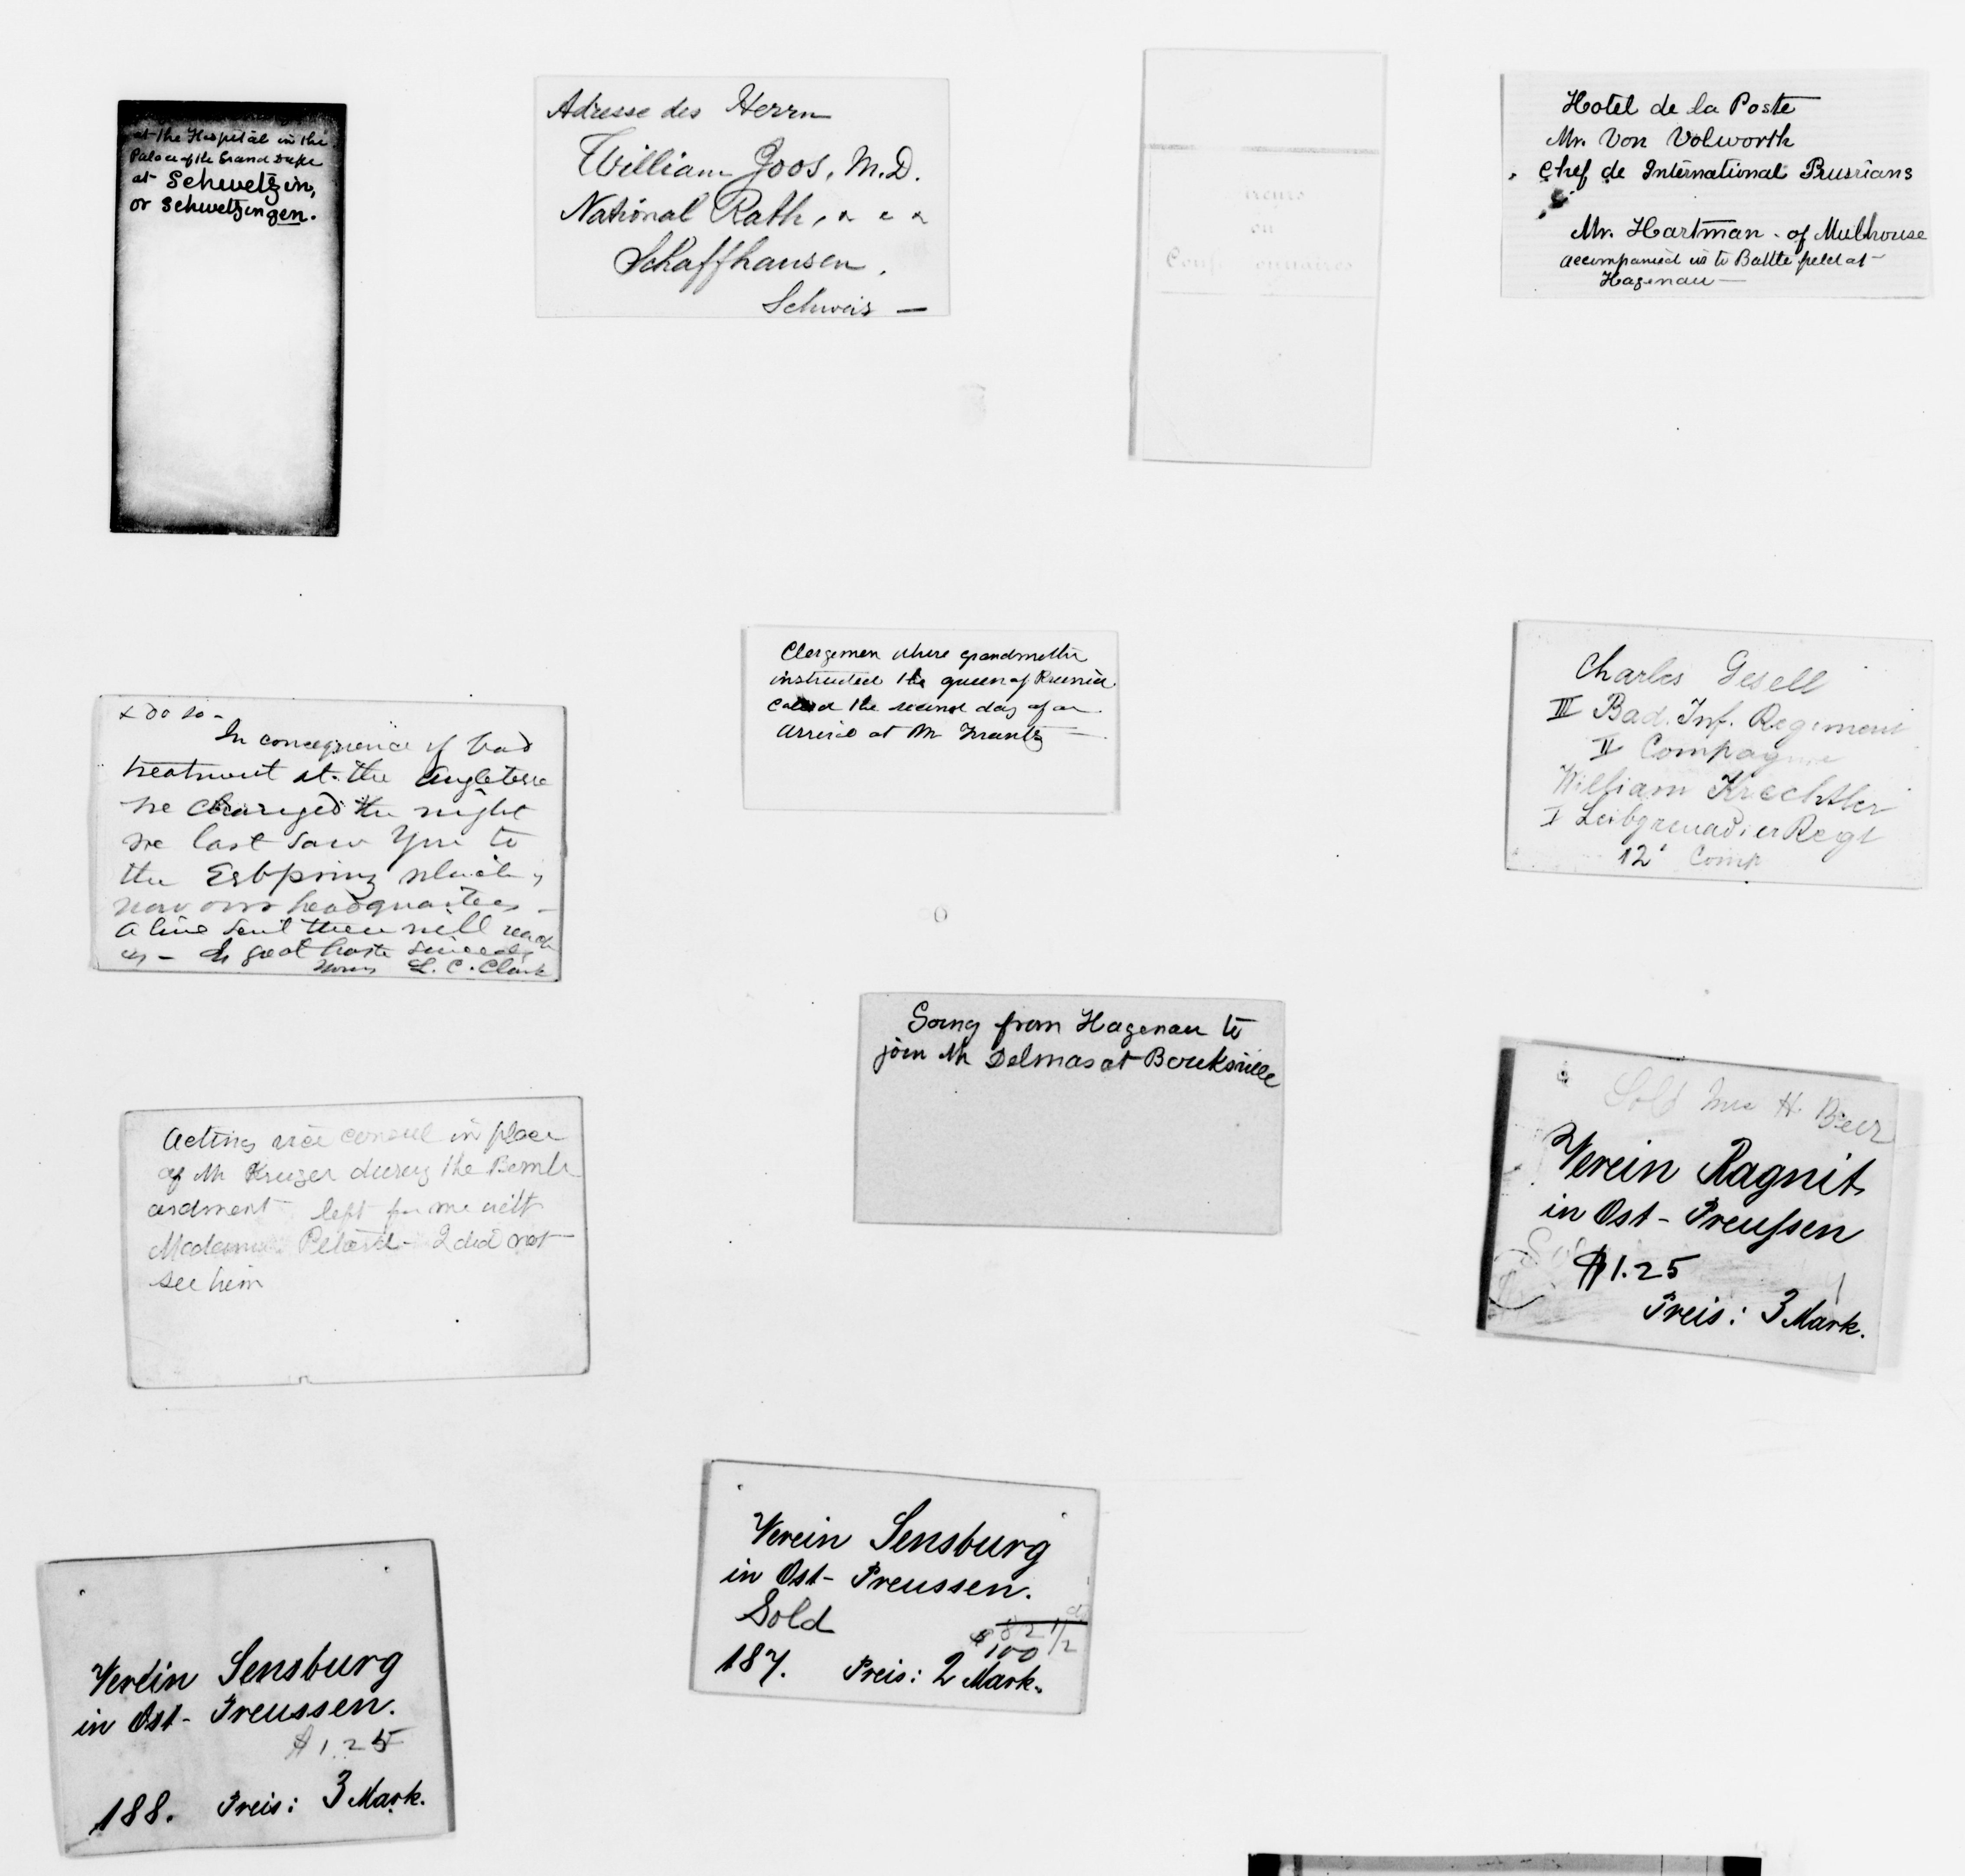 at the Hospital in the
Palace of the Grand Duke
at Schwetzin,
or Schwetzingen.
Adresse des Herrn
William Joos, M.D.
National Rath,
Schaffhausen,
Schweis —
Hotel de la Poste
Mr. Von Volworth
Chef de International Prussians
Mr. Hartman - of Mulhouse
accompanied us to Battle field at
Hagenau —
& do so -
In consequence of bad
treatment at the Angleterre
we changed the night
we last saw you to
the Erbprinz which is
now our headquarters -
A line sent there will reach
us - In great haste sincerely
Yours L. C. Clark
Clergemen where grandmother
instructed the queen of
Called the second day of
at Mr Frantz
Charles Gesell
III Bad. Inf. Regiment
II Compagnie
William Krechtler
I Leibgrenadier Regt
12' Comp
Going from Hagenau to
join Mr Delmas at Bouksville
Acting vice consul in place
of Mr Kruger during the Bomb
ardment left for me with
I did not
see him
Sold Mrs H. Beer
Verein Ragnit
in Ost-Preußen
$1.25
Preis: 3 Mark.
Verein Sensburg
in Ost-Preussen.
Sold
82 1/2
$100
187. Preis: 2 Mark.
Verein Sensburg
in Ost-Preussen.
$1.25
188. Preis: 3 Mark.